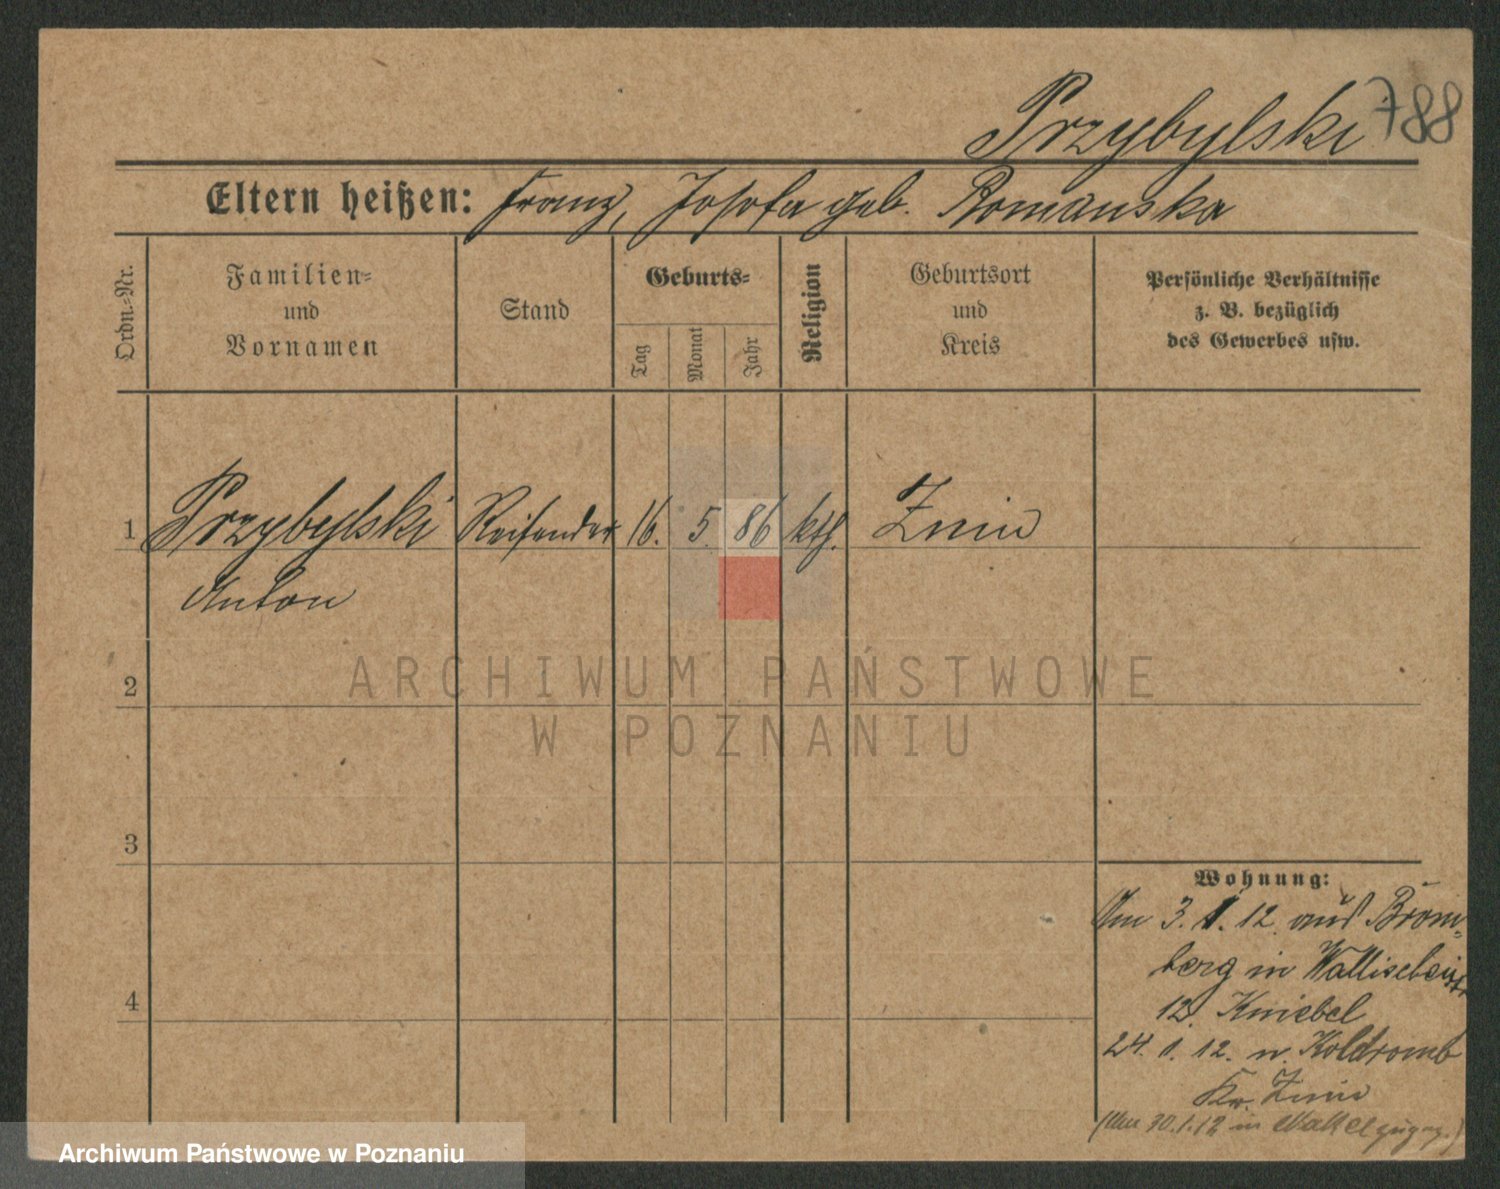 Przybylski 788
Eltern heißen: Franz, Josefa geb. Romanska
Ordn.=Nr.
Familien=
und
Vornamen
Stand
Geburts=
Tag
Monat
Jahr
Religion
Geburtsort
und
Kreis
Persönliche Verhältnisse
z. B. bezüglich
des Gewerbes usw.
1 Przybylski Reisender 16. 5. 86 kth. Znin
Anton
2
3
4
Wohnung:
Am 3. 1. 12. aus Brom=
berg in Wallischeistr
12. Kniebel
24. 1. 12. n. Koldromb
Kr. Znin
(Am 30.1.12 in Nakel zugez.)
ARCHIWUM PAŃSTWOWE
W POZNANIU
Archiwum Państwowe w Poznaniu